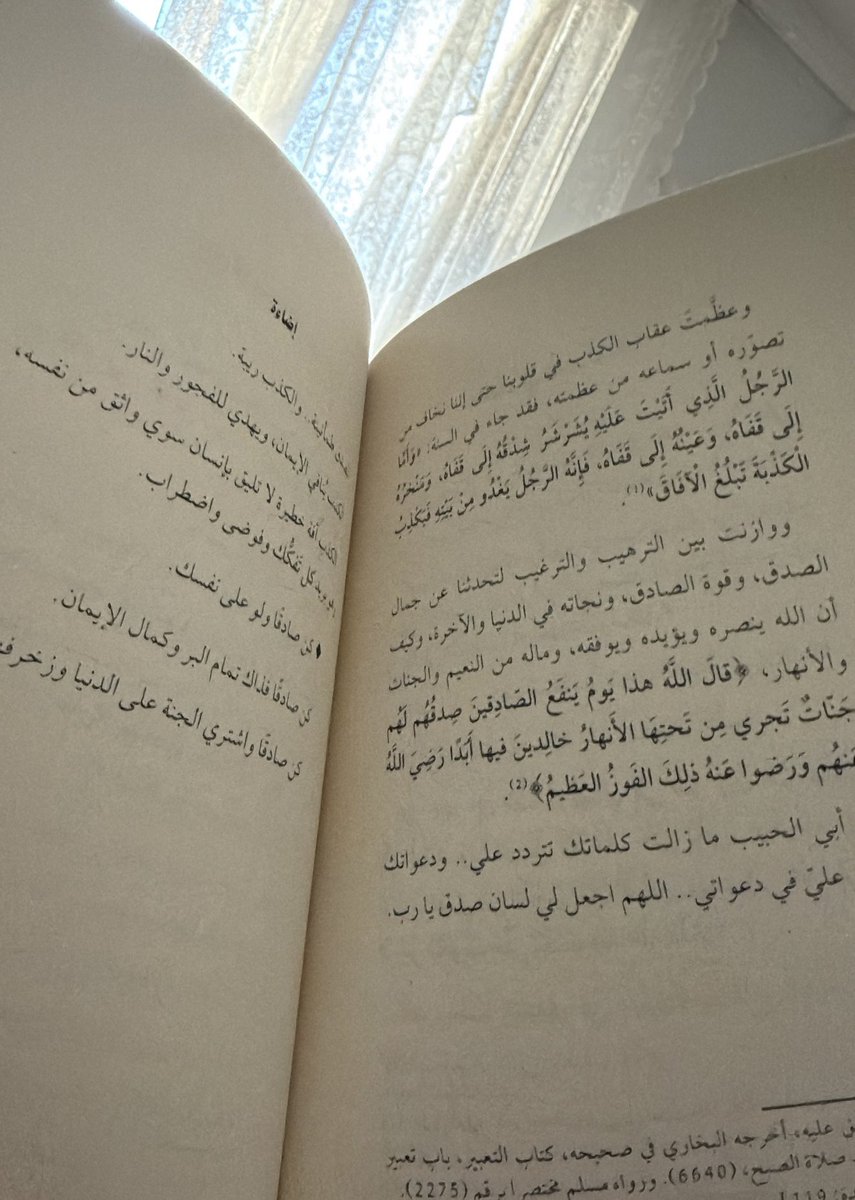 وعظَّمتَ عقاب الكذب في قلوبنا حتى إننا نخاف من
تصوّره أو سماعه من عظمته، فقد جاء في السنة: «وَأَمَّا
الرَّجُلُ الَّذِي أَتَيْتَ عَلَيْهِ يُشَرْشَرُ شِدْقُهُ إِلَى قَفَاهُ، وَمَنْخِرُهُ
إِلَى قَفَاهُ، وَعَيْنُهُ إِلَى قَفَاهُ، فَإِنَّهُ الرَّجُلُ يَغْدُو مِنْ بَيْتِهِ فَيَكْذِبُ
الْكَذْبَةَ تَبْلُغُ الْآفَاقَ»(1).
ووازنت بين الترهيب والترغيب لتحدثنا عن جمال
الصدق، وقوة الصادق، ونجاته في الدنيا والآخرة، وكيف
أن الله ينصره ويؤيده ويوفقه، وماله من النعيم والجنات
والأنهار، ﴿قالَ اللَّهُ هذا يَومُ يَنفَعُ الصّادِقينَ صِدقُهُم لَهُم
جَنّاتٌ تَجري مِن تَحتِهَا الأَنهارُ خالِدينَ فيها أَبَدًا رَضِيَ اللَّهُ
عَنهُم وَرَضوا عَنهُ ذلِكَ الفَوزُ العَظيمُ﴾(2).
أبي الحبيب ما زالت كلماتك تتردد علي.. ودعواتك
عليّ في دعواتي.. اللهم اجعل لي لسان صدق يا رب.
عليه، أخرجه البخاري في صحيحه، كتاب التعبير، باب تعبير
صلاة الصبح، (6640). ورواه مسلم مختصرا برقم (2275).
إضاءة
والكذب ريبة.
الكذب ينافي الإيمان، ويهدي للفجور والنار.
الكذب آفة خطيرة لا تليق بإنسان سوي واثق من نفسه،
كل تفكُّك وفوضى واضطراب.
♦ كن صادقًا ولو على نفسك.
كن صادقًا فذاك تمام البر وكمال الإيمان.
كن صادقًا واشتري الجنة على الدنيا